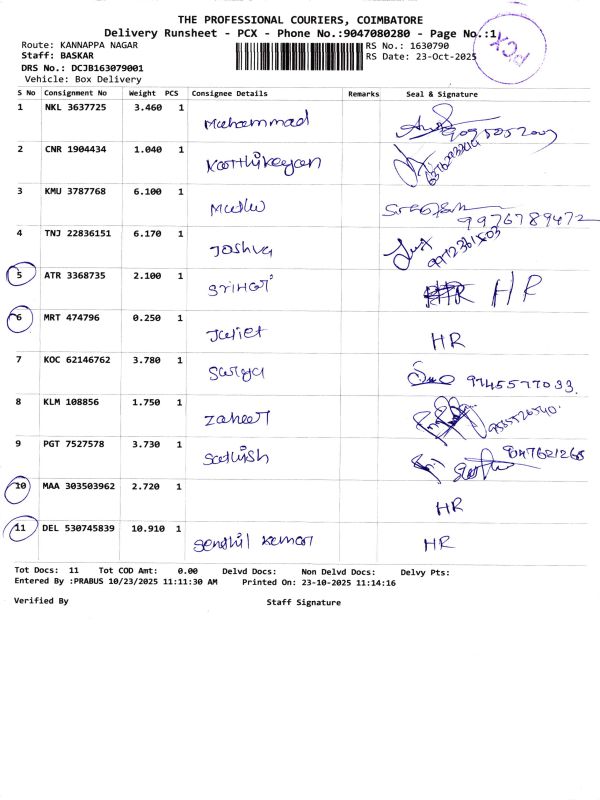 THE PROFESSIONAL COURIERS, COIMBATORE
Delivery Runsheet - PCX - Phone No.:9047080280 - Page No.:1
PCX
Route: KANNAPPA NAGAR RS No.: 1630790
Staff: BASKAR RS Date: 23-Oct-2025
DRS No.: DCJB163079001
Vehicle: Box Delivery
S No Consignment No Weight PCS Consignee Details Remarks Seal & Signature
1 NKL 3637725 3.460 1 Muhammad
2 CNR 1904434 1.040 1 Karthikeyan
3 KMU 3787768 6.100 1 Muthu 9976789472
4 TNJ 22836151 6.170 1 Joshua
5 ATR 3368735 2.100 1 Srihari HR
6 MRT 474796 0.250 1 Juliet HR
7 KOC 62146762 3.780 1 Surya 9745577033.
8 KLM 108856 1.750 1 Zaheer
9 PGT 7527578 3.730 1 Sathish
10 MAA 303503962 2.720 1 HR
11 DEL 530745839 10.910 1 Senthil Kumar HR
Tot Docs: 11 Tot COD Amt: 0.00 Delvd Docs: Non Delvd Docs: Delvy Pts:
Entered By :PRABUS 10/23/2025 11:11:30 AM Printed On: 23-10-2025 11:14:16
Verified By Staff Signature